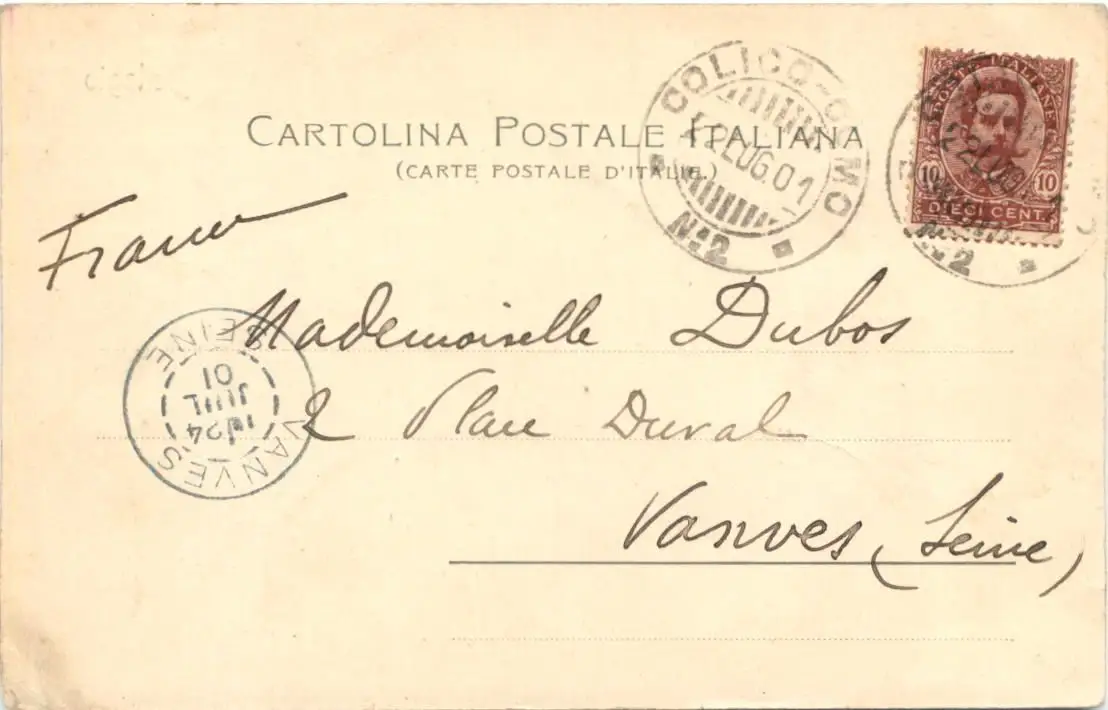 CARTOLINA POSTALE ITALIANA
(CARTE POSTALE D'ITALIE.)
COLICO-COMO
LUG.01
N.2
POSTE ITALIANE
10 10
DIECI CENT.
22 LUG 01
N.2
France
Mademoiselle Dubos
2 Place Duval
Vanves (Seine)
VANVES
24
JUIL
01
SEINE